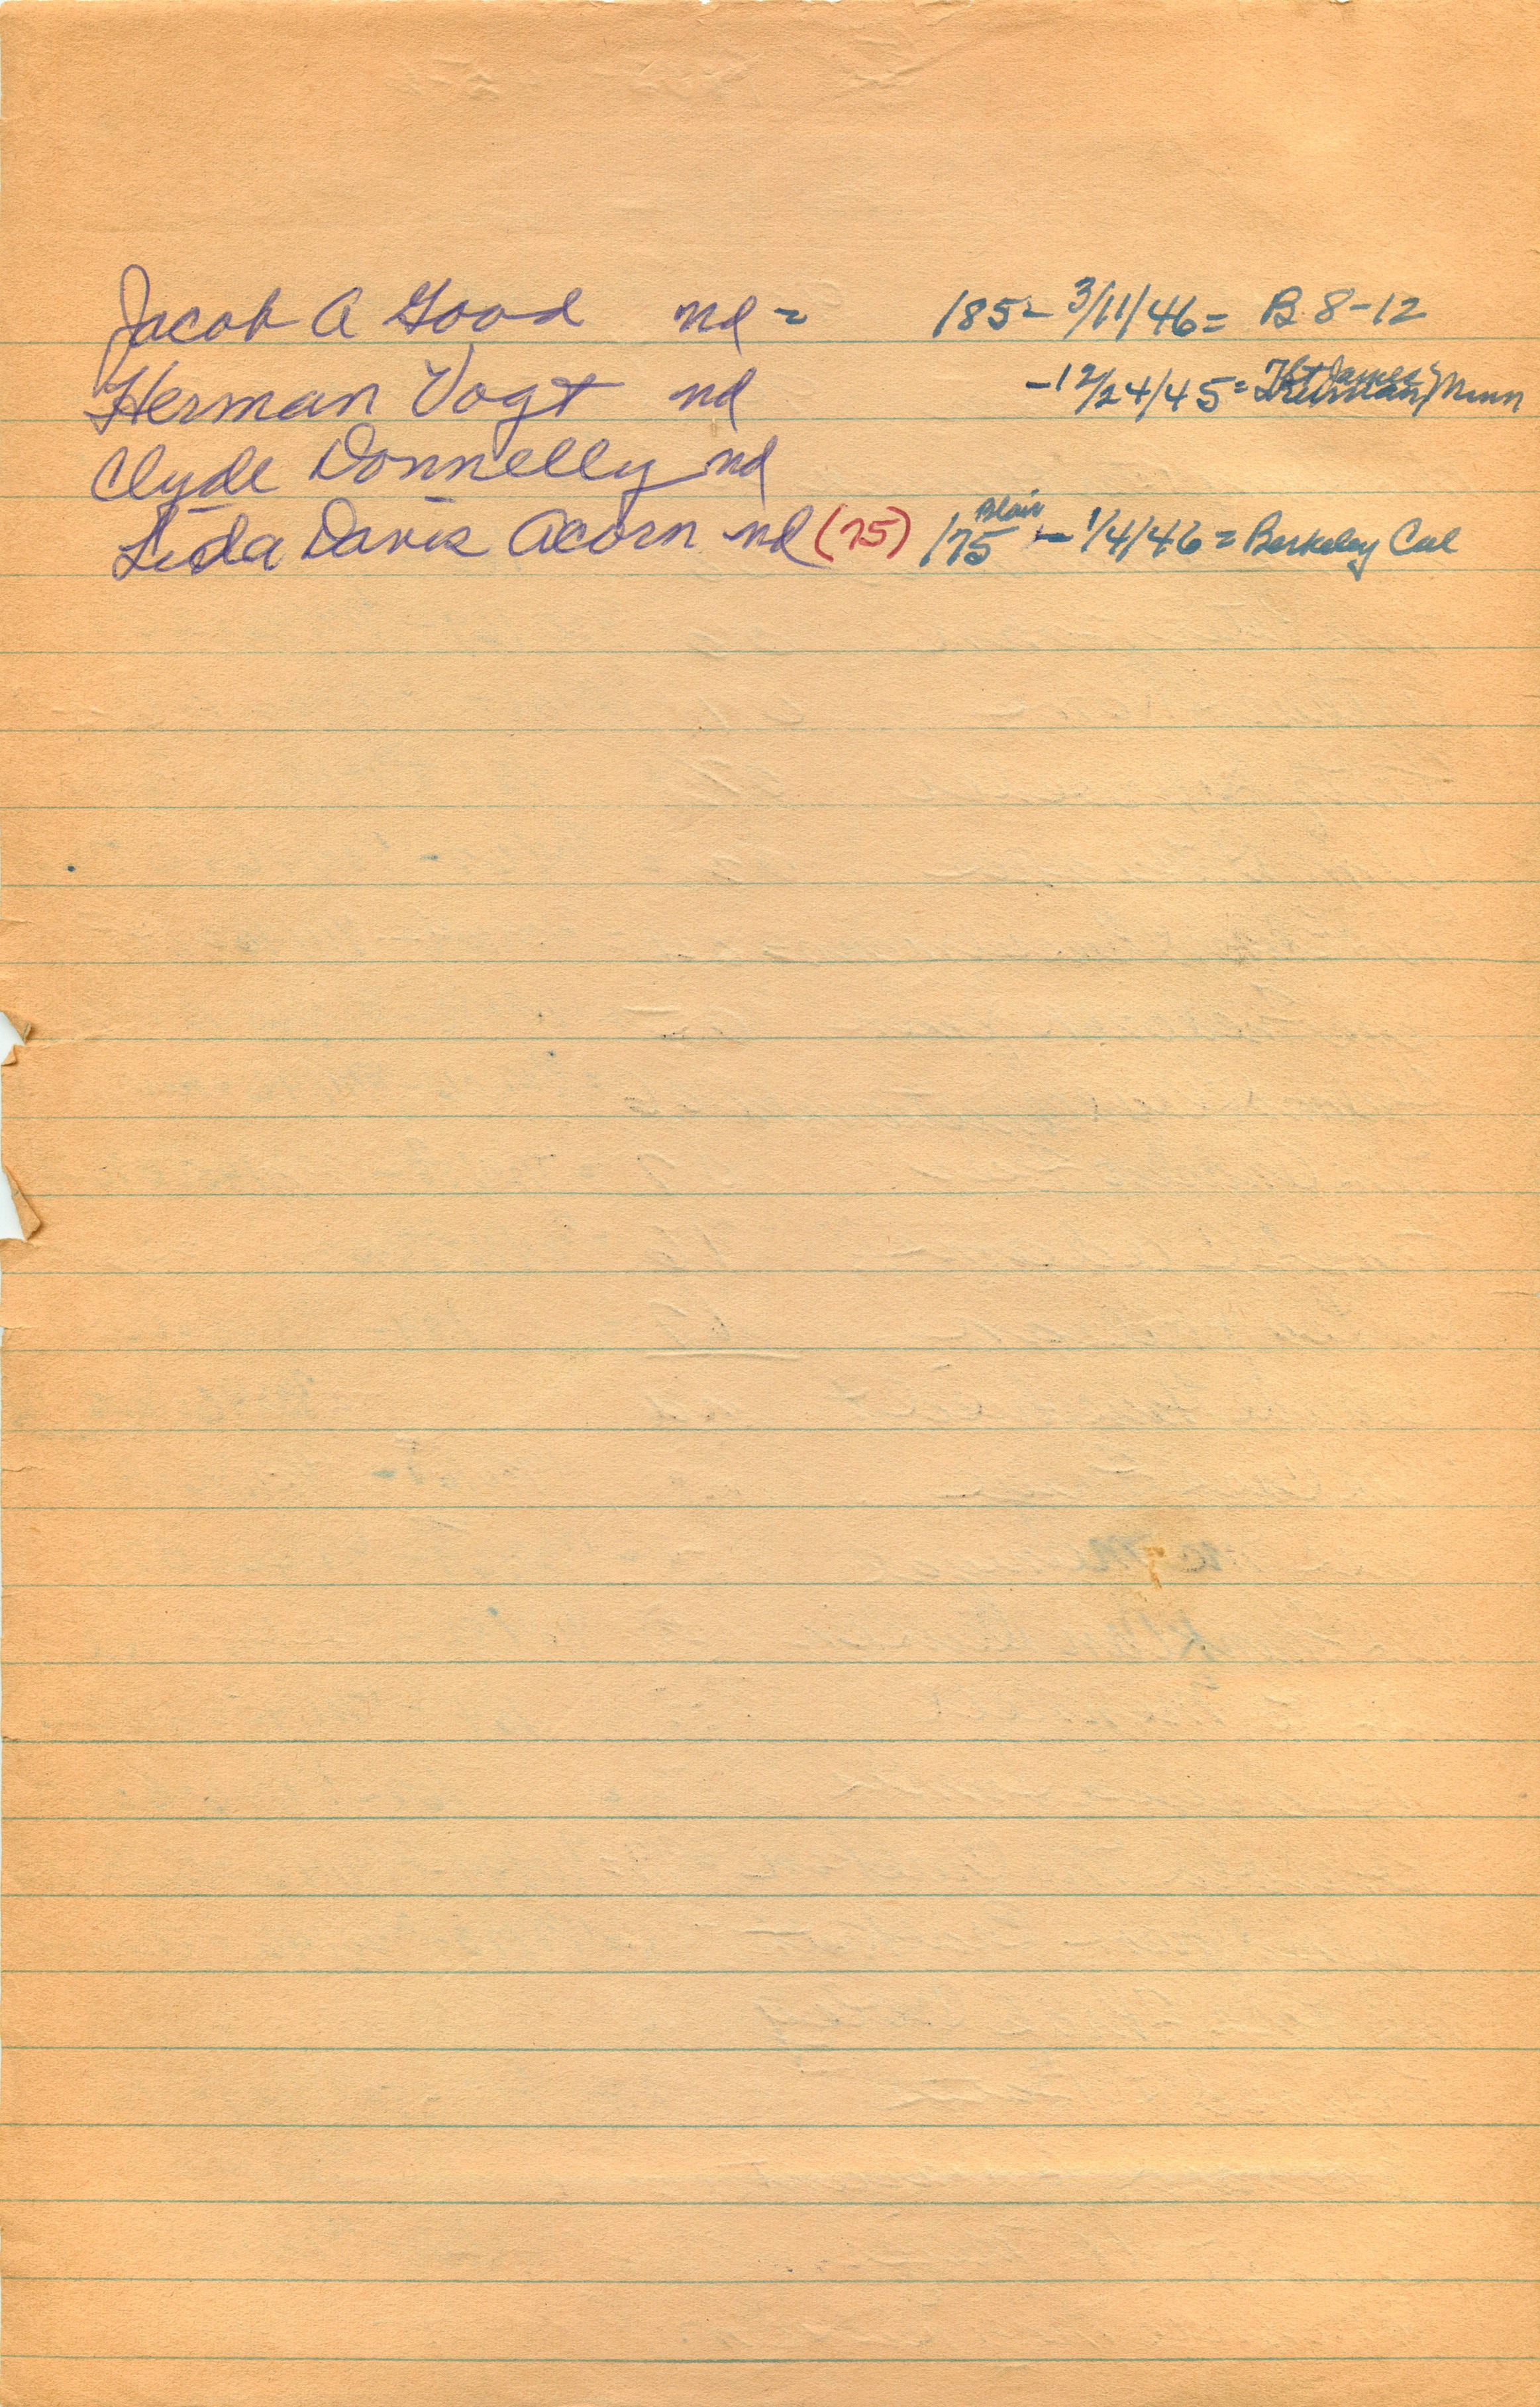 Jacob A Good nd = 185 - 3/11/46 = B 8-12
Herman Vogt nd - 12/24/45 = Minn
Clyde Donnelly nd
Blair
Lida Davis Acorn nd (75) 175 - 1/4/46 = Berkeley Cal